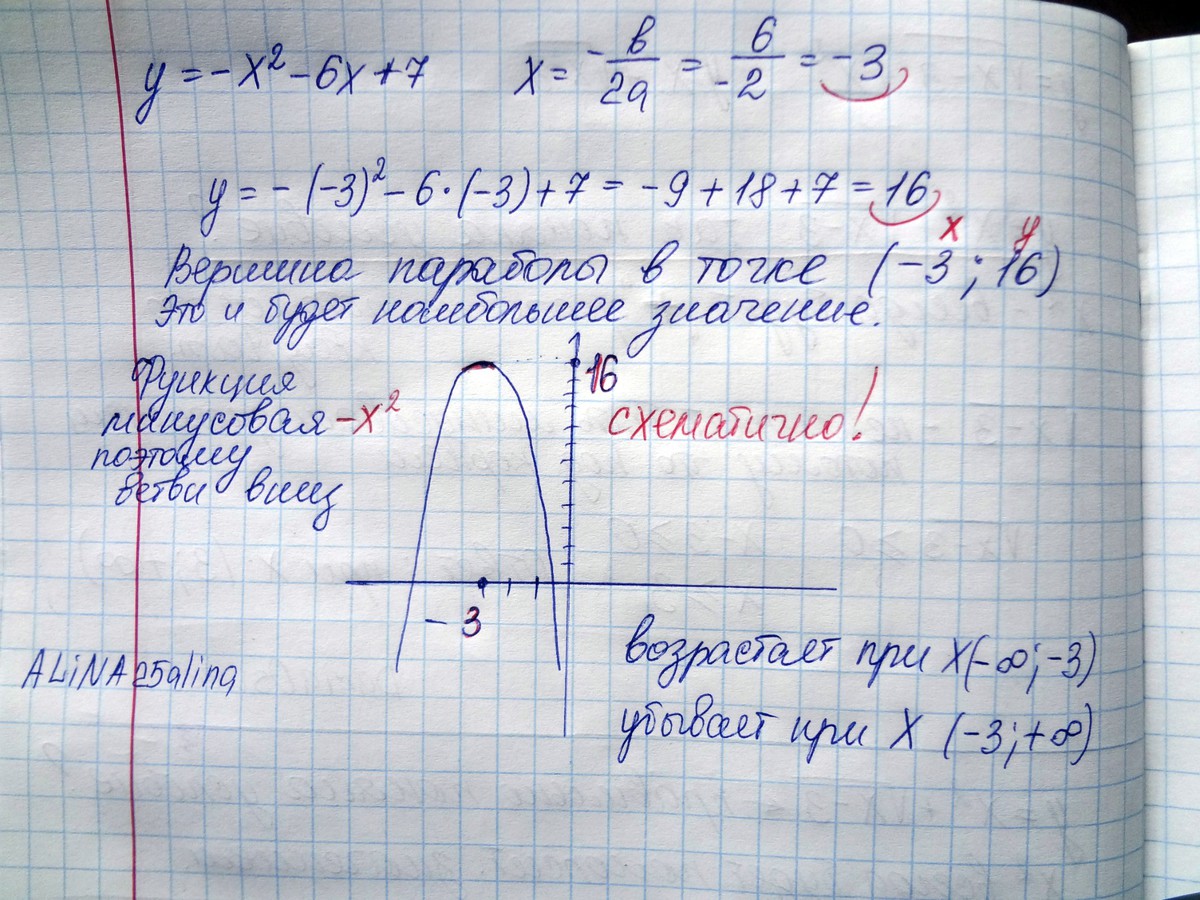 y = -x² - 6x + 7   x = -в/2a = 6/-2 = -3
y = -(-3)² - 6·(-3) + 7 = -9 + 18 + 7 = 16
x y
Вершина параболы в точке (-3; 16)
Это и будет наибольшее значение.
Функция
минусовая -x²
поэтому
ветви вниз
16
схематично!
-3
возрастает при x(-∞; -3)
убывает при x (-3; +∞)
ALiNA25alina